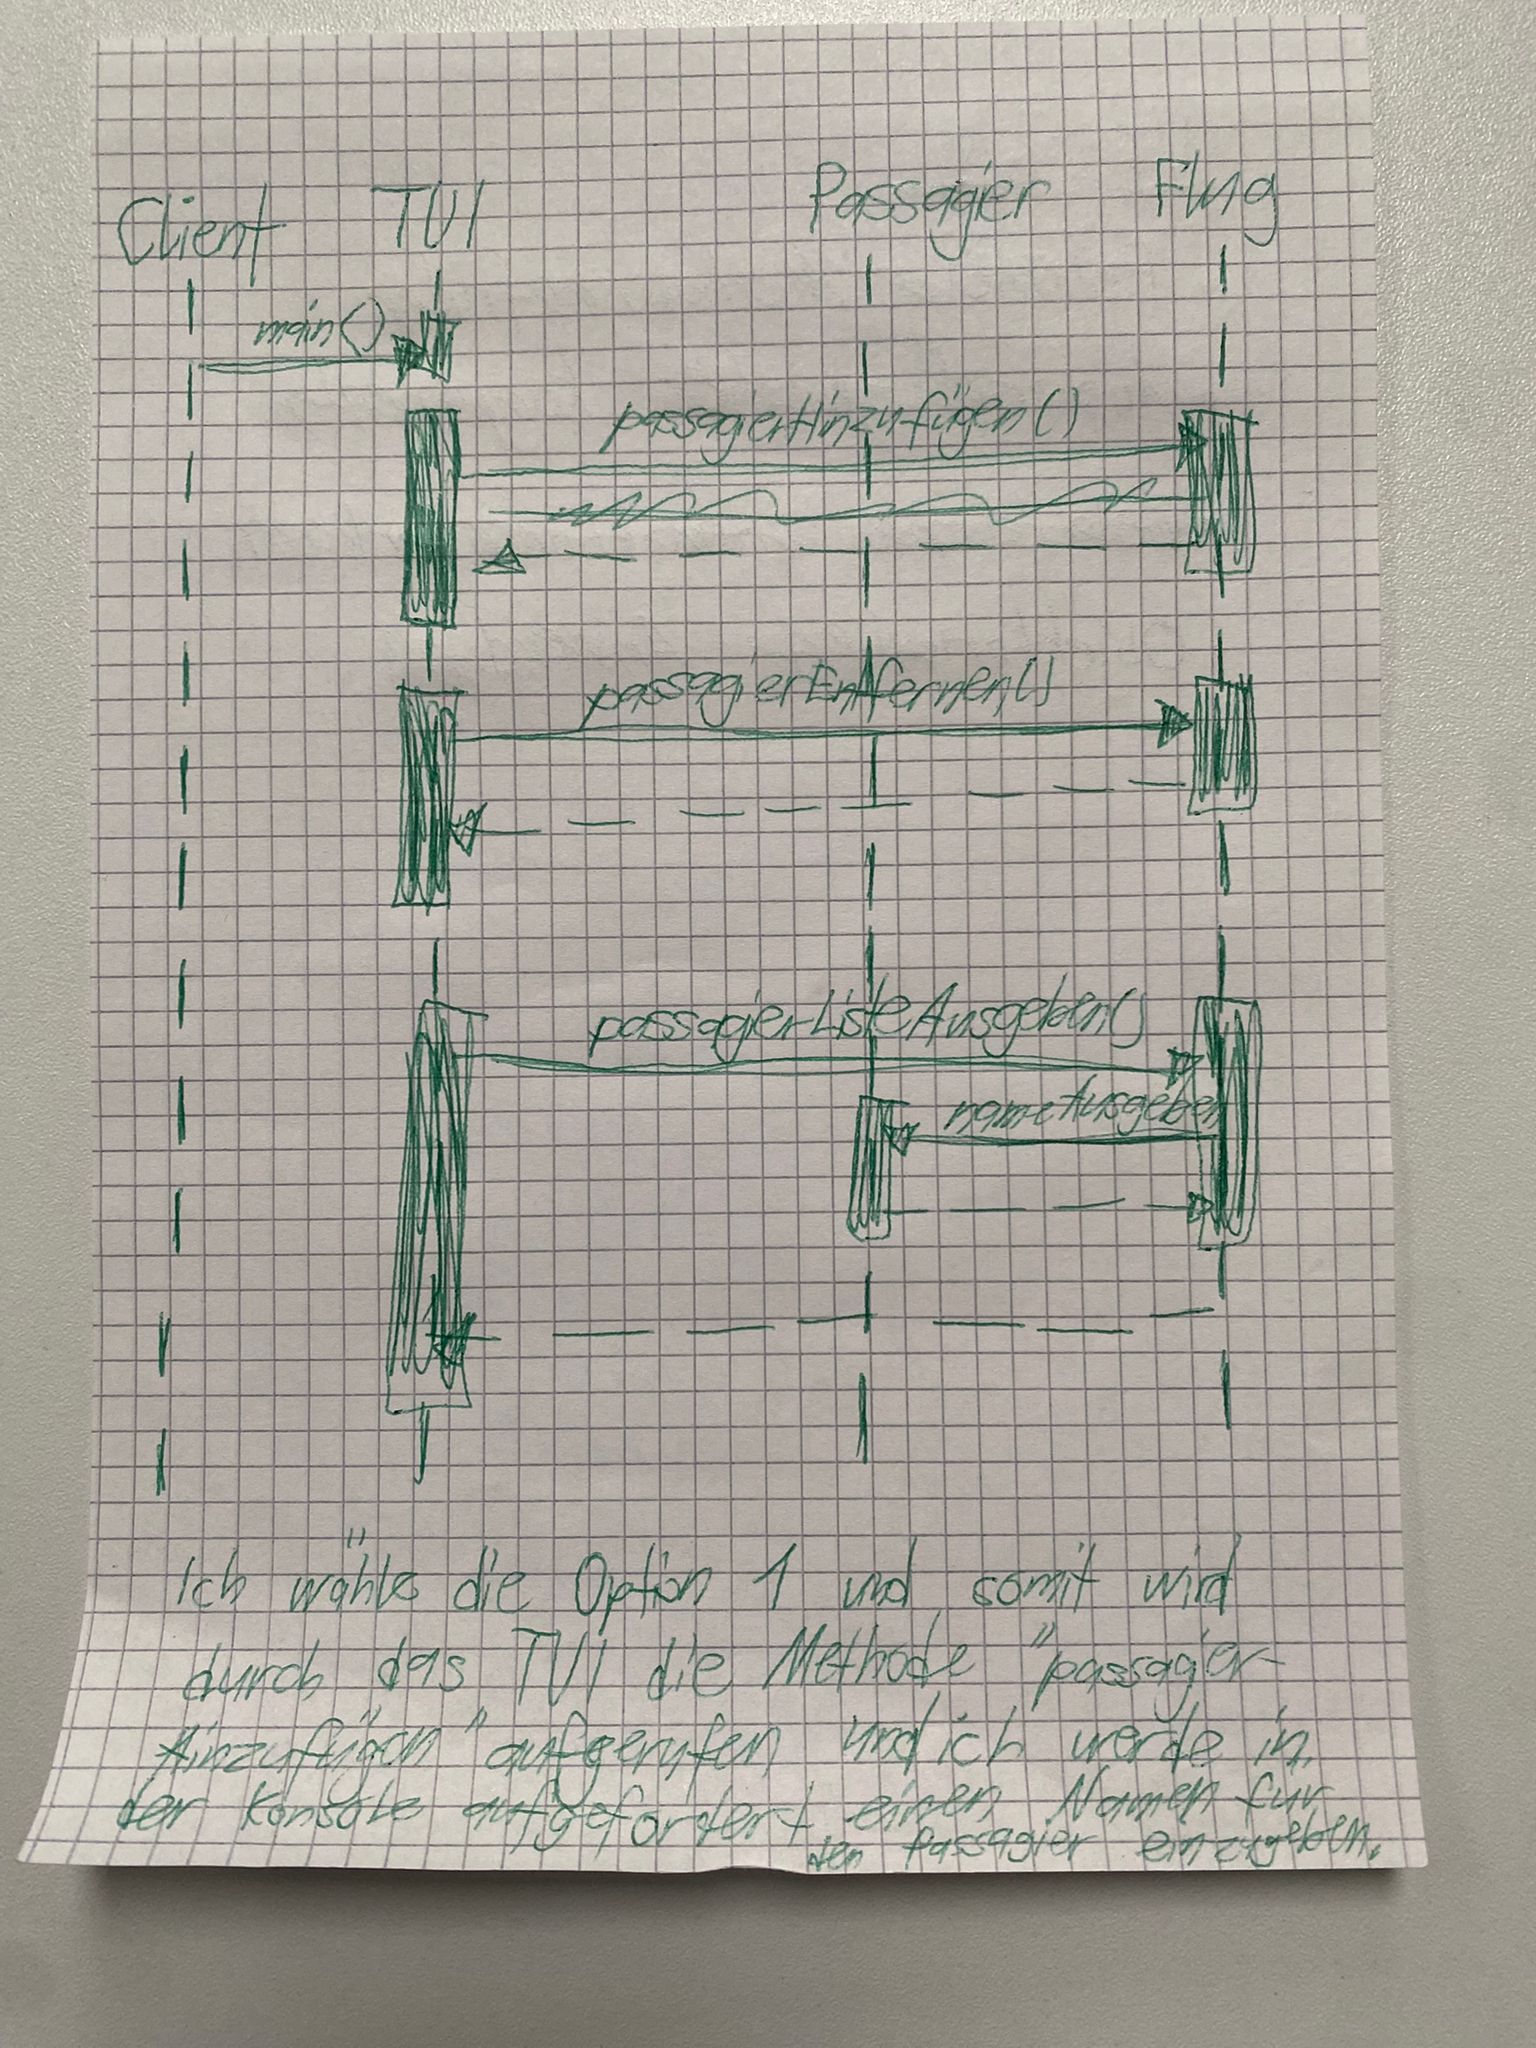 Client TUI Passagier Flug
main()
passagierHinzufügen()
passagierEntfernen()
passagierListeAusgeben()
nameAusgeben
Ich wähle die Option 1 und somit wird
durch das TUI die Methode "passagier-
Hinzufügen" aufgerufen und ich werde in
der Konsole aufgefordert einen Namen für
den Passagier einzugeben.